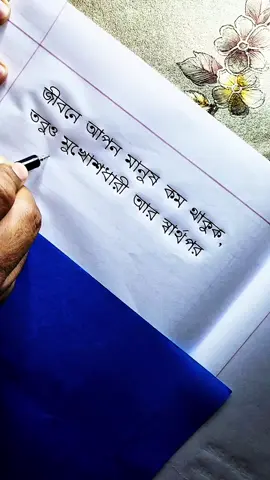 জীবনে আপন মানুষ কম থাকুক,
তবুও মুখোশধারী আর স্বার্থপর